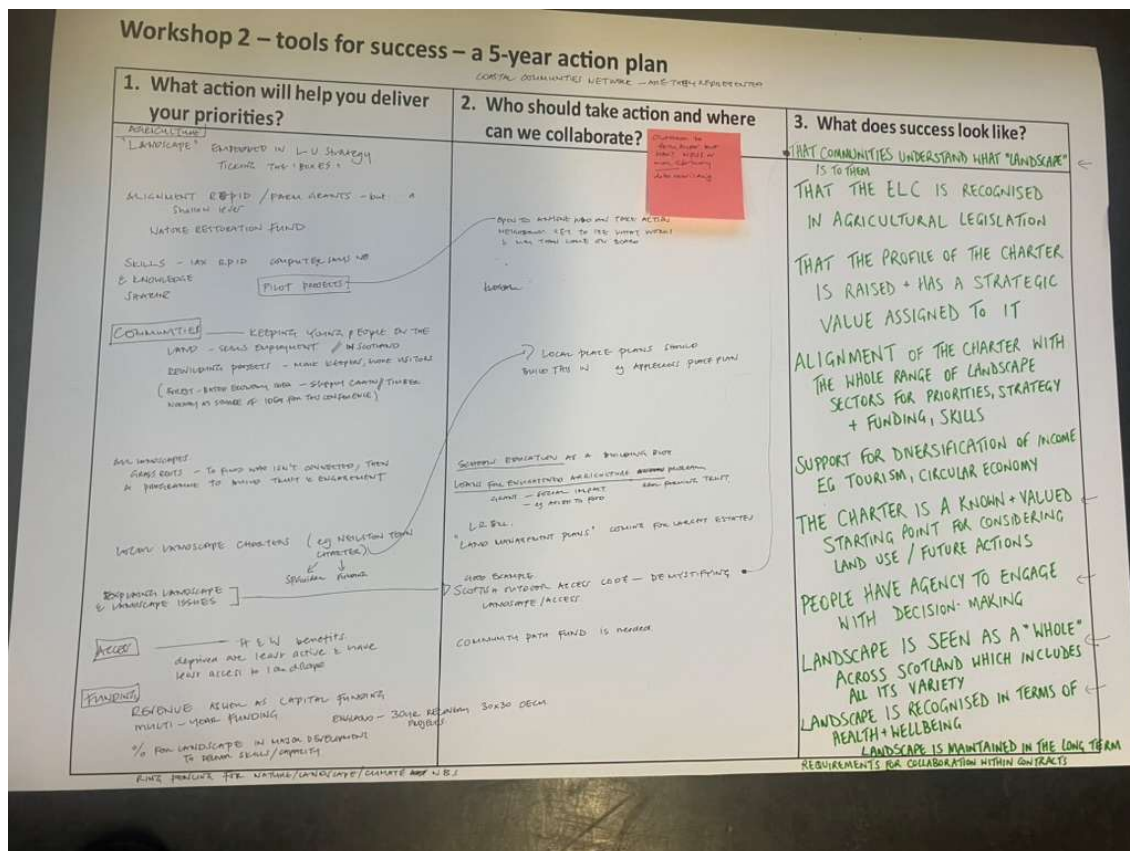 Workshop 2 – tools for success – a 5-year action plan
COASTAL COMMUNITIES NETWORK – ARE THEY REPRESENTED
1. What action will help you deliver
your priorities?
AGRICULTURE
"LANDSCAPE" EMBEDDED IN L-U Strategy
TICKING THE 'BOXES'
ALIGNMENT RPID / FARM GRANTS – but.. a
shallow lever
NATURE RESTORATION FUND
SKILLS – RPID COMPUTER SAYS NO
& KNOWLEDGE
SHARING
PILOT PROJECTS
COMMUNITIES — KEEPING YOUNG PEOPLE ON THE
LAND – SKILLS EMPLOYMENT IN SCOTLAND
REWILDING PROJECTS – MORE KEEPERS, MORE VISITORS
(FOREST-BASED ECONOMY IDEA – SUPPLY CHAIN / TIMBER
NORWAY AS SOURCE OF IDEA FOR THIS CONFERENCE)
ALL LANDSCAPES
GRASS ROOTS – TO FIND WHO ISN'T CONNECTED, THEN
A PROGRAMME TO BUILD TRUST & ENGAGEMENT
LOCAL LANDSCAPE CHARTERS (eg NEILSTON TOWN
CHARTER)
EXPLAINING LANDSCAPE
& LANDSCAPE ISSUES
ACCESS — H & W benefits
deprived are least active & have
least access to landscape
FUNDING
REVENUE AS WELL AS CAPITAL FUNDING
MULTI-YEAR FUNDING ENGLAND – 30YR RECOVERY 30X30 OECM
PROJECTS
% FOR LANDSCAPE IN MAJOR DEVELOPMENT
TO DELIVER SKILLS/CAPACITY
RING FENCING FOR NATURE/LANDSCAPE/CLIMATE NBS
2. Who should take action and where
can we collaborate?
OPEN TO ANYONE WHO CAN TAKE ACTION
NEIGHBOURS GET TO SEE WHAT WORKS
& WILL THEN COME ON BOARD
LOCAL PLACE PLANS SHOULD
BUILD THIS IN eg APPLECROSS PLACE PLAN
SCHOOL EDUCATION AS A BUILDING BLOCK
LOANS FOR ENLIGHTENED AGRICULTURE PROGRAM,
GRANT – SOCIAL IMPACT REAL FARMING TRUST.
– eg ACCESS TO FOOD
L.R. BILL.
"LAND MANAGEMENT PLANS" COMING FOR LARGEST ESTATES
GOOD EXAMPLE
SCOTTISH OUTDOOR ACCESS CODE – DEMYSTIFYING
LANDSCAPE/ACCESS
COMMUNITY PATH FUND IS needed
3. What does success look like?
THAT COMMUNITIES UNDERSTAND WHAT "LANDSCAPE"
IS TO THEM
THAT THE ELC IS RECOGNISED
IN AGRICULTURAL LEGISLATION
THAT THE PROFILE OF THE CHARTER
IS RAISED + HAS A STRATEGIC
VALUE ASSIGNED TO IT
ALIGNMENT OF THE CHARTER WITH
THE WHOLE RANGE OF LANDSCAPE
SECTORS FOR PRIORITIES, STRATEGY
+ FUNDING, SKILLS
SUPPORT FOR DIVERSIFICATION OF INCOME
EG TOURISM, CIRCULAR ECONOMY
THE CHARTER IS A KNOWN + VALUED
STARTING POINT FOR CONSIDERING
LAND USE / FUTURE ACTIONS
PEOPLE HAVE AGENCY TO ENGAGE
WITH DECISION-MAKING
LANDSCAPE IS SEEN AS A "WHOLE"
ACROSS SCOTLAND WHICH INCLUDES
ALL ITS VARIETY
LANDSCAPE IS RECOGNISED IN TERMS OF
HEALTH + WELLBEING
LANDSCAPE IS MAINTAINED IN THE LONG TERM
REQUIREMENTS FOR COLLABORATION WITHIN CONTRACTS